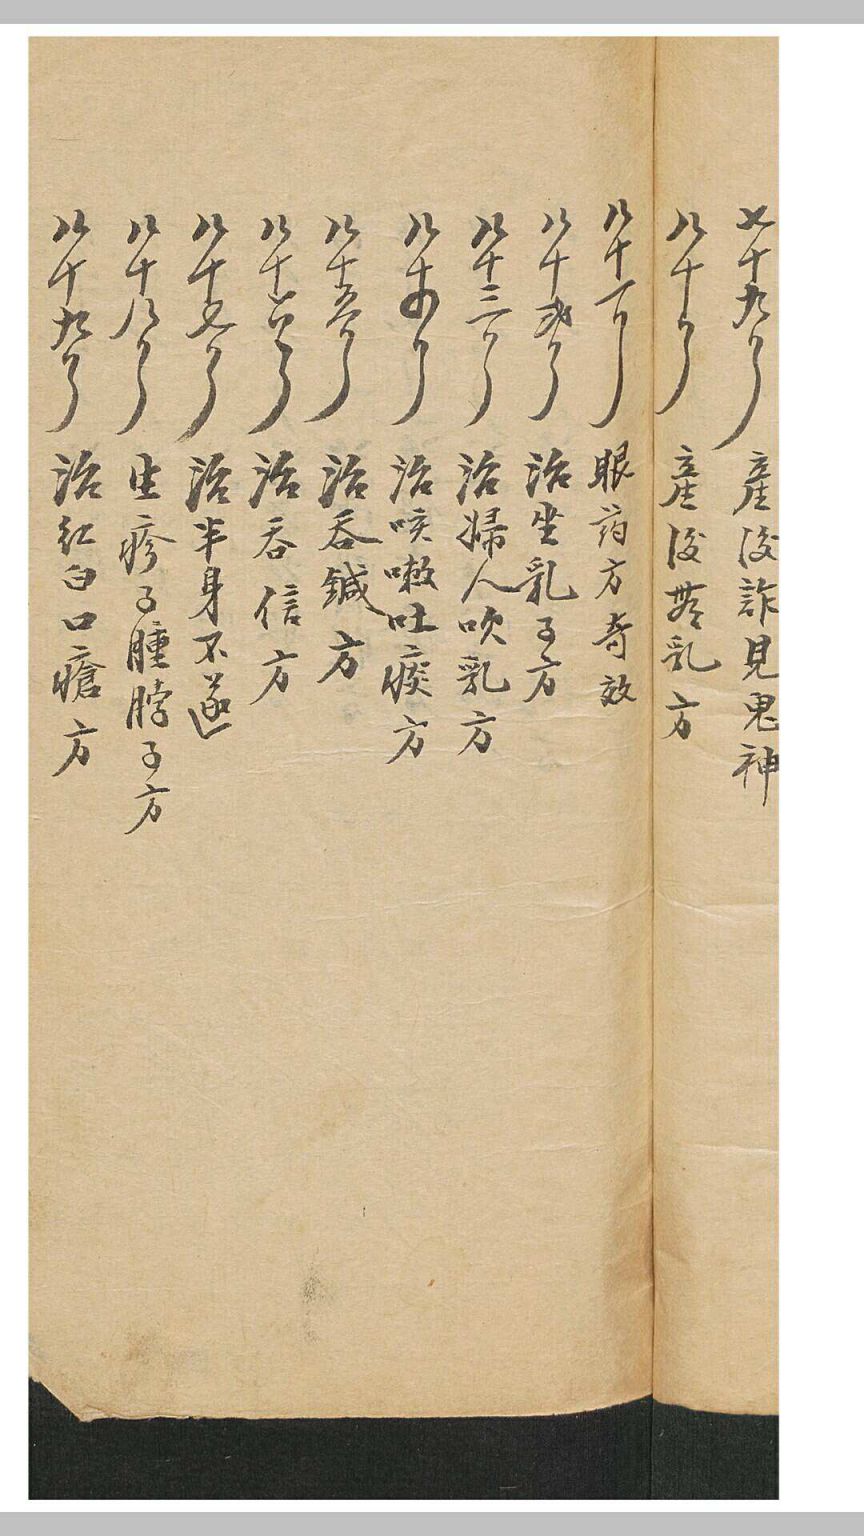 七十九 産後詐見鬼神
八十 産後無乳方
八十一 眼药方奇效
八十弍 治坐乳子方
八十三 治婦人吹乳方
八十四 治咳嗽吐痰方
八十五 治吞鍼方
八十六 治吞信方
八十七 治半身不遂
八十八 生疹子腫脖子方
八十九 治紅白口瘡方